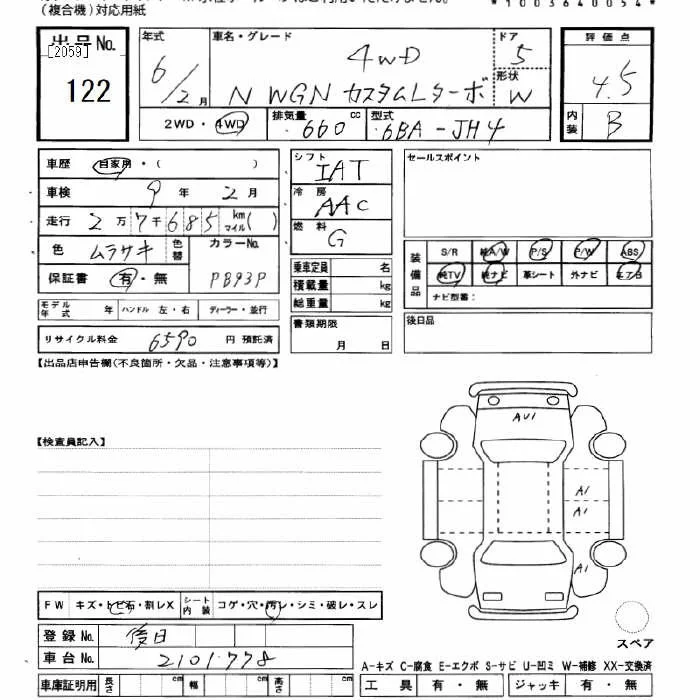 (複合機)対応用紙
*1003640054*
出品No.
[2059]
122
年式
6/2月
車名・グレード
4WD
N WGN カスタムLターボ
ドア
5
形状
W
2WD・4WD
排気量
660 cc
型式
6BA-JH4
評価点
4.5
内装
B
車歴 自家用・( )
車検 9年 2月
走行 2万7千685 km マイル( )
色 ムラサキ 色替
カラーNo.
PB93P
保証書 有・無
モデル年式 年 ハンドル 左・右 ディーラー・並行
リサイクル料金 6590 円 預託済
シフト
IAT
冷房
AAC
燃料
G
乗車定員 名
積載量 kg
総重量 kg
書類期限
月 日
セールスポイント
装備品
S/R 純A/W P/S P/W ABS
純TV 純ナビ 革シート 外ナビ エアB
ナビ型番:
後日品
【出品店申告欄(不良箇所・欠品・注意事項等)】
【検査員記入】
AU1
A1
A1
A1
FW キズ・トビ石・割レX
シート内装 コゲ・穴・汚レ・シミ・破レ・スレ
登録No. 後日
車台No. 2101778
車庫証明用 長さ cm 幅 cm 高さ cm
スペア
A-キズ C-腐食 E-エクボ S-サビ U-凹ミ W-補修 XX-交換済
工具 有・無 ジャッキ 有・無